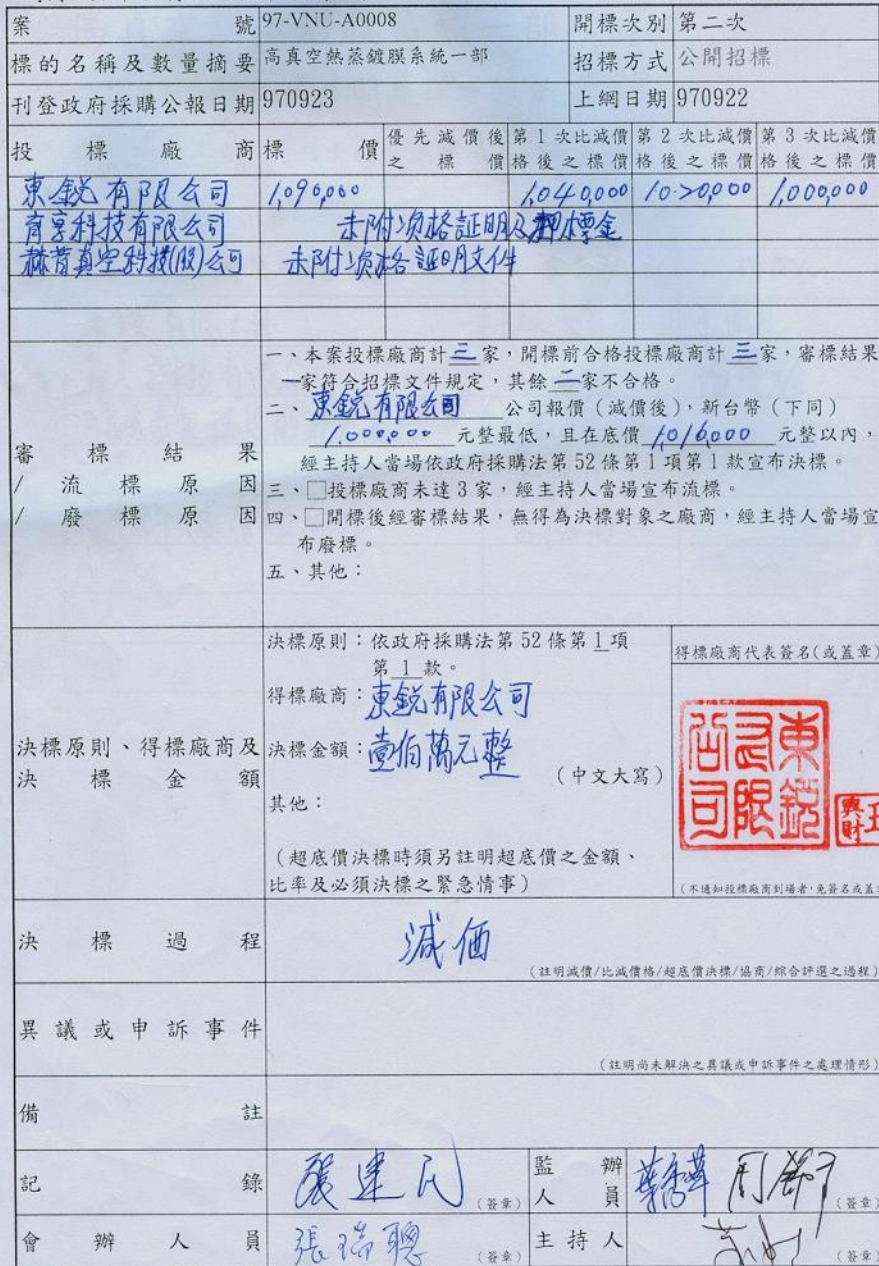 案號 97-VNU-A0008 開標次別 第二次
標的名稱及數量摘要 高真空熱蒸鍍膜系統一部 招標方式 公開招標
刊登政府採購公報日期 970923 上網日期 970922
投標廠商 標價 優先減價後之標價 第1次比減價格後之標價 第2次比減價格後之標價 第3次比減價格後之標價
東銳有限公司 1,090,000 1,040,000 10.20,000 1,000,000
育享科技有限公司 未附資格証明及押標金
赫普真空科技(股)公司 未附資格証明文件
審標結果
/流標原因
/廢標原因
一、本案投標廠商計三家,開標前合格投標廠商計三家,審標結果
一家符合招標文件規定,其餘二家不合格。
二、東銳有限公司 公司報價(減價後),新台幣(下同)
1,000,000 元整最低,且在底價 1,016,000 元整以內,
經主持人當場依政府採購法第52條第1項第1款宣布決標。
三、□投標廠商未達3家,經主持人當場宣布流標。
四、□開標後經審標結果,無得為決標對象之廠商,經主持人當場宣
布廢標。
五、其他:
決標原則、得標廠商及
決標金額
決標原則:依政府採購法第52條第1項
第1款。
得標廠商:東銳有限公司
決標金額:壹佰萬元整
(中文大寫)
其他:
(超底價決標時須另註明超底價之金額、
比率及必須決標之緊急情事)
得標廠商代表簽名(或蓋章)
東銳有限公司
興財
(不通知投標廠商到場者,免簽名或蓋
決標過程 減価
(註明減價/比減價格/超底價決標/協商/綜合評選之過程)
異議或申訴事件
(註明尚未解決之異議或申訴事件之處理情形)
備註
記錄 張建民 (簽章) 監辦人員 (簽章)
會辦人員 張瑞聰 (簽章) 主持人 (簽章)